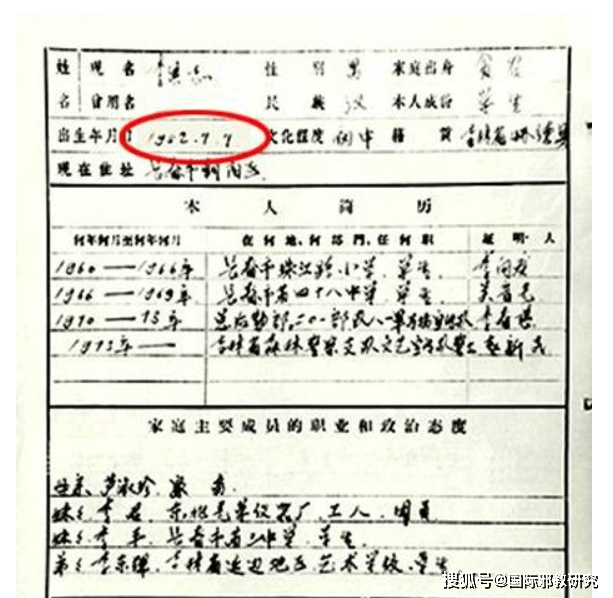 姓 现名 李洪志 性别 男 家庭出身 贫农
名 曾用名 民族 汉 本人成份 学生
出生年月日 1952.7.7 文化程度 初中 籍贯 吉林省怀德县
现在住址 长春市朝阳区
本人简历
何年何月至何年何月 在何地、何部門、任何职 証明人
1960——1966年 长春市珠江路小学 学生
1966——1969年 长春市第四十八中学 学生
1970——73年 总后勤部二〇一部民八一军马场宣传队
1973年—— 吉林省森林警察支队文艺宣传队 赵新民
家庭主要成員的职业和政治态度
母亲 芦淑珍
妹 李君 工人 团员
妹 李平 长春市第二中学 学生
弟 李东辉 吉林省延边地区艺术学校 学生
搜狐号@国际邪教研究